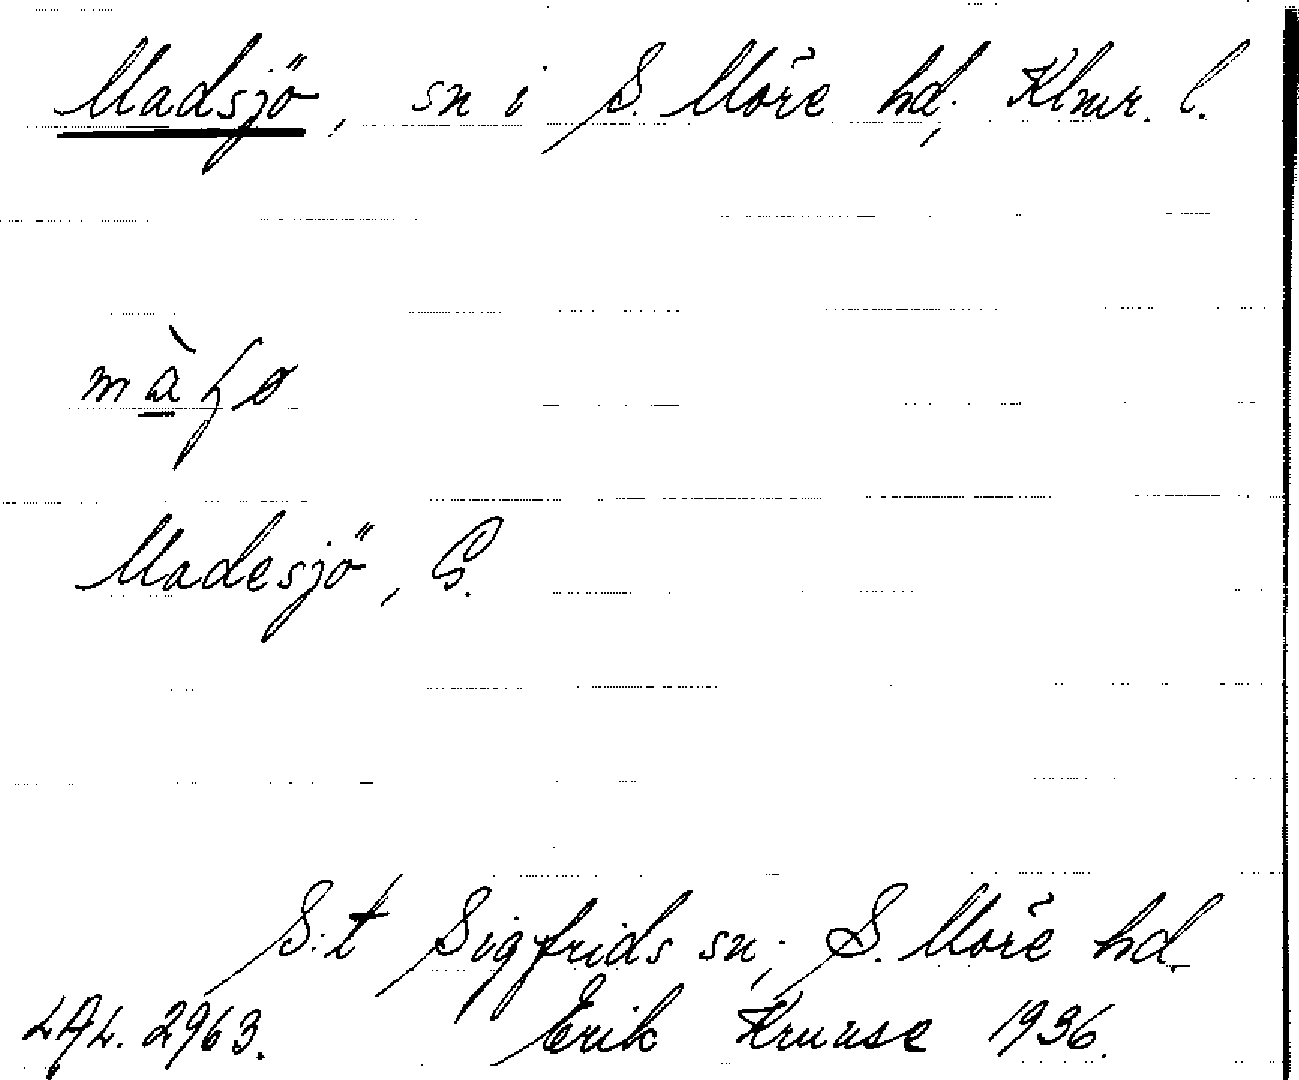 Madsjö, sn i S. Möre hd, Klmr. l.
Madesjö, G.
S:t Sigfrids sn; S. Möre hd.
LAL. 2963. Erik Kruuse 1936.